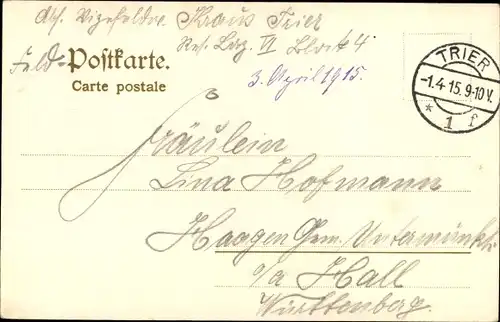 Abs. Vizefeldw. Kraus Trier
Res. Laz. VI Block 4
Feld-Postkarte.
Carte postale
3. April 1915.
TRIER
-1.4.15.9-10V.
* 1 f
Fräulein
Lina Hofmann
Haagen Gem. Untermünkh.
o/a Hall
Württenberg.